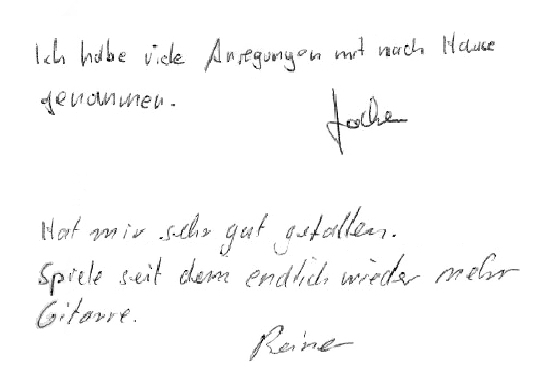 Ich habe viele Anregungen mit nach Hause
genommen.
Jochen
Hat mir sehr gut gefallen.
Spiele seit dem endlich wieder mehr
Gitarre.
Reiner